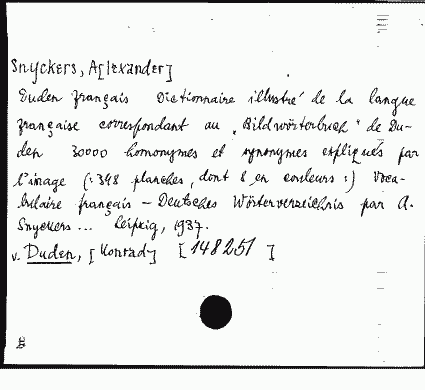 Snyckers, A[lexander]
Duden français Dictionnaire illustré de la langue
française correspondant au „Bildwörterbuch" de Du-
den 30000 homonymes et synonymes expliqués par
l'image (: 348 planches, dont 8 en couleurs :) Voca-
bulaire français – Deutsches Wörterverzeichnis par A.
Snyckers ... Leipzig, 1937.
v. Duden, [Konrad] [148251]